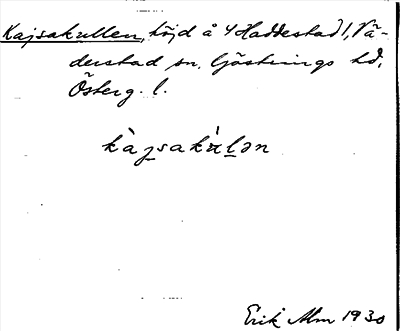 Kajsakullen, höjd å 4 Haddestad 1, Vä-
derstad sn. Göstrings hd,
Österg. l.
kàjsakúlən
Erik Alm 1930